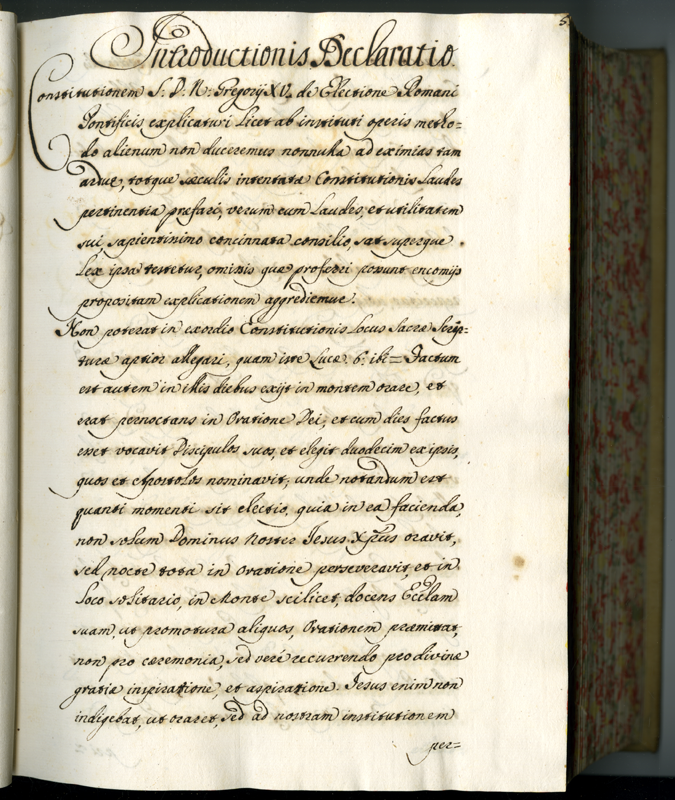 5.
Introductionis Declaratio.
Constitutionem S: D: N: Gregorij XV. de Electione Romani
Pontificis explicaturi licet ab instituti operis metho=
do alienum non duceremus nonnulla ad eximias tam
arduę, totque sæculis intentatæ Constitutionis Laudes
pertinentia præfari, verum cum Laudes, et utilitatem
sui, sapientissimo concinnata consilio, sat superque
Lex ipsa testetur, omissis quæ proferri possunt encomijs
propositam explicationem aggrediemur.
Non poterat in exordio Constitutionis Locus Sacræ Scrip=
turæ aptior allegari, quam iste Lucæ 6: ibi = Factum
est autem in illis diebus exijt in montem orare, et
erat pernoctans in Oratione Dei, et cum dies factus
esset vocavit Discipulos suos, et elegit duodecim ex ipsis,
quos et Apostolos nominavit; unde notandum est
quanti momenti sit electio, quia in ea facienda,
non solum Dominus Noster Jesus Xpũs oravit,
sed, nocte tota in Oratione perseveravit, et in
Loco solitario, in Monte scilicet, docens Ecclam
suam, ut promotura aliquos, Orationem præmittat,
non pro cæremonia, sed veré recurrendo pro divinæ
gratiæ inspiratione, et aspiratione. Jesus enim non
indigebat, ut oraret, sed ad nostram institutionem
per=